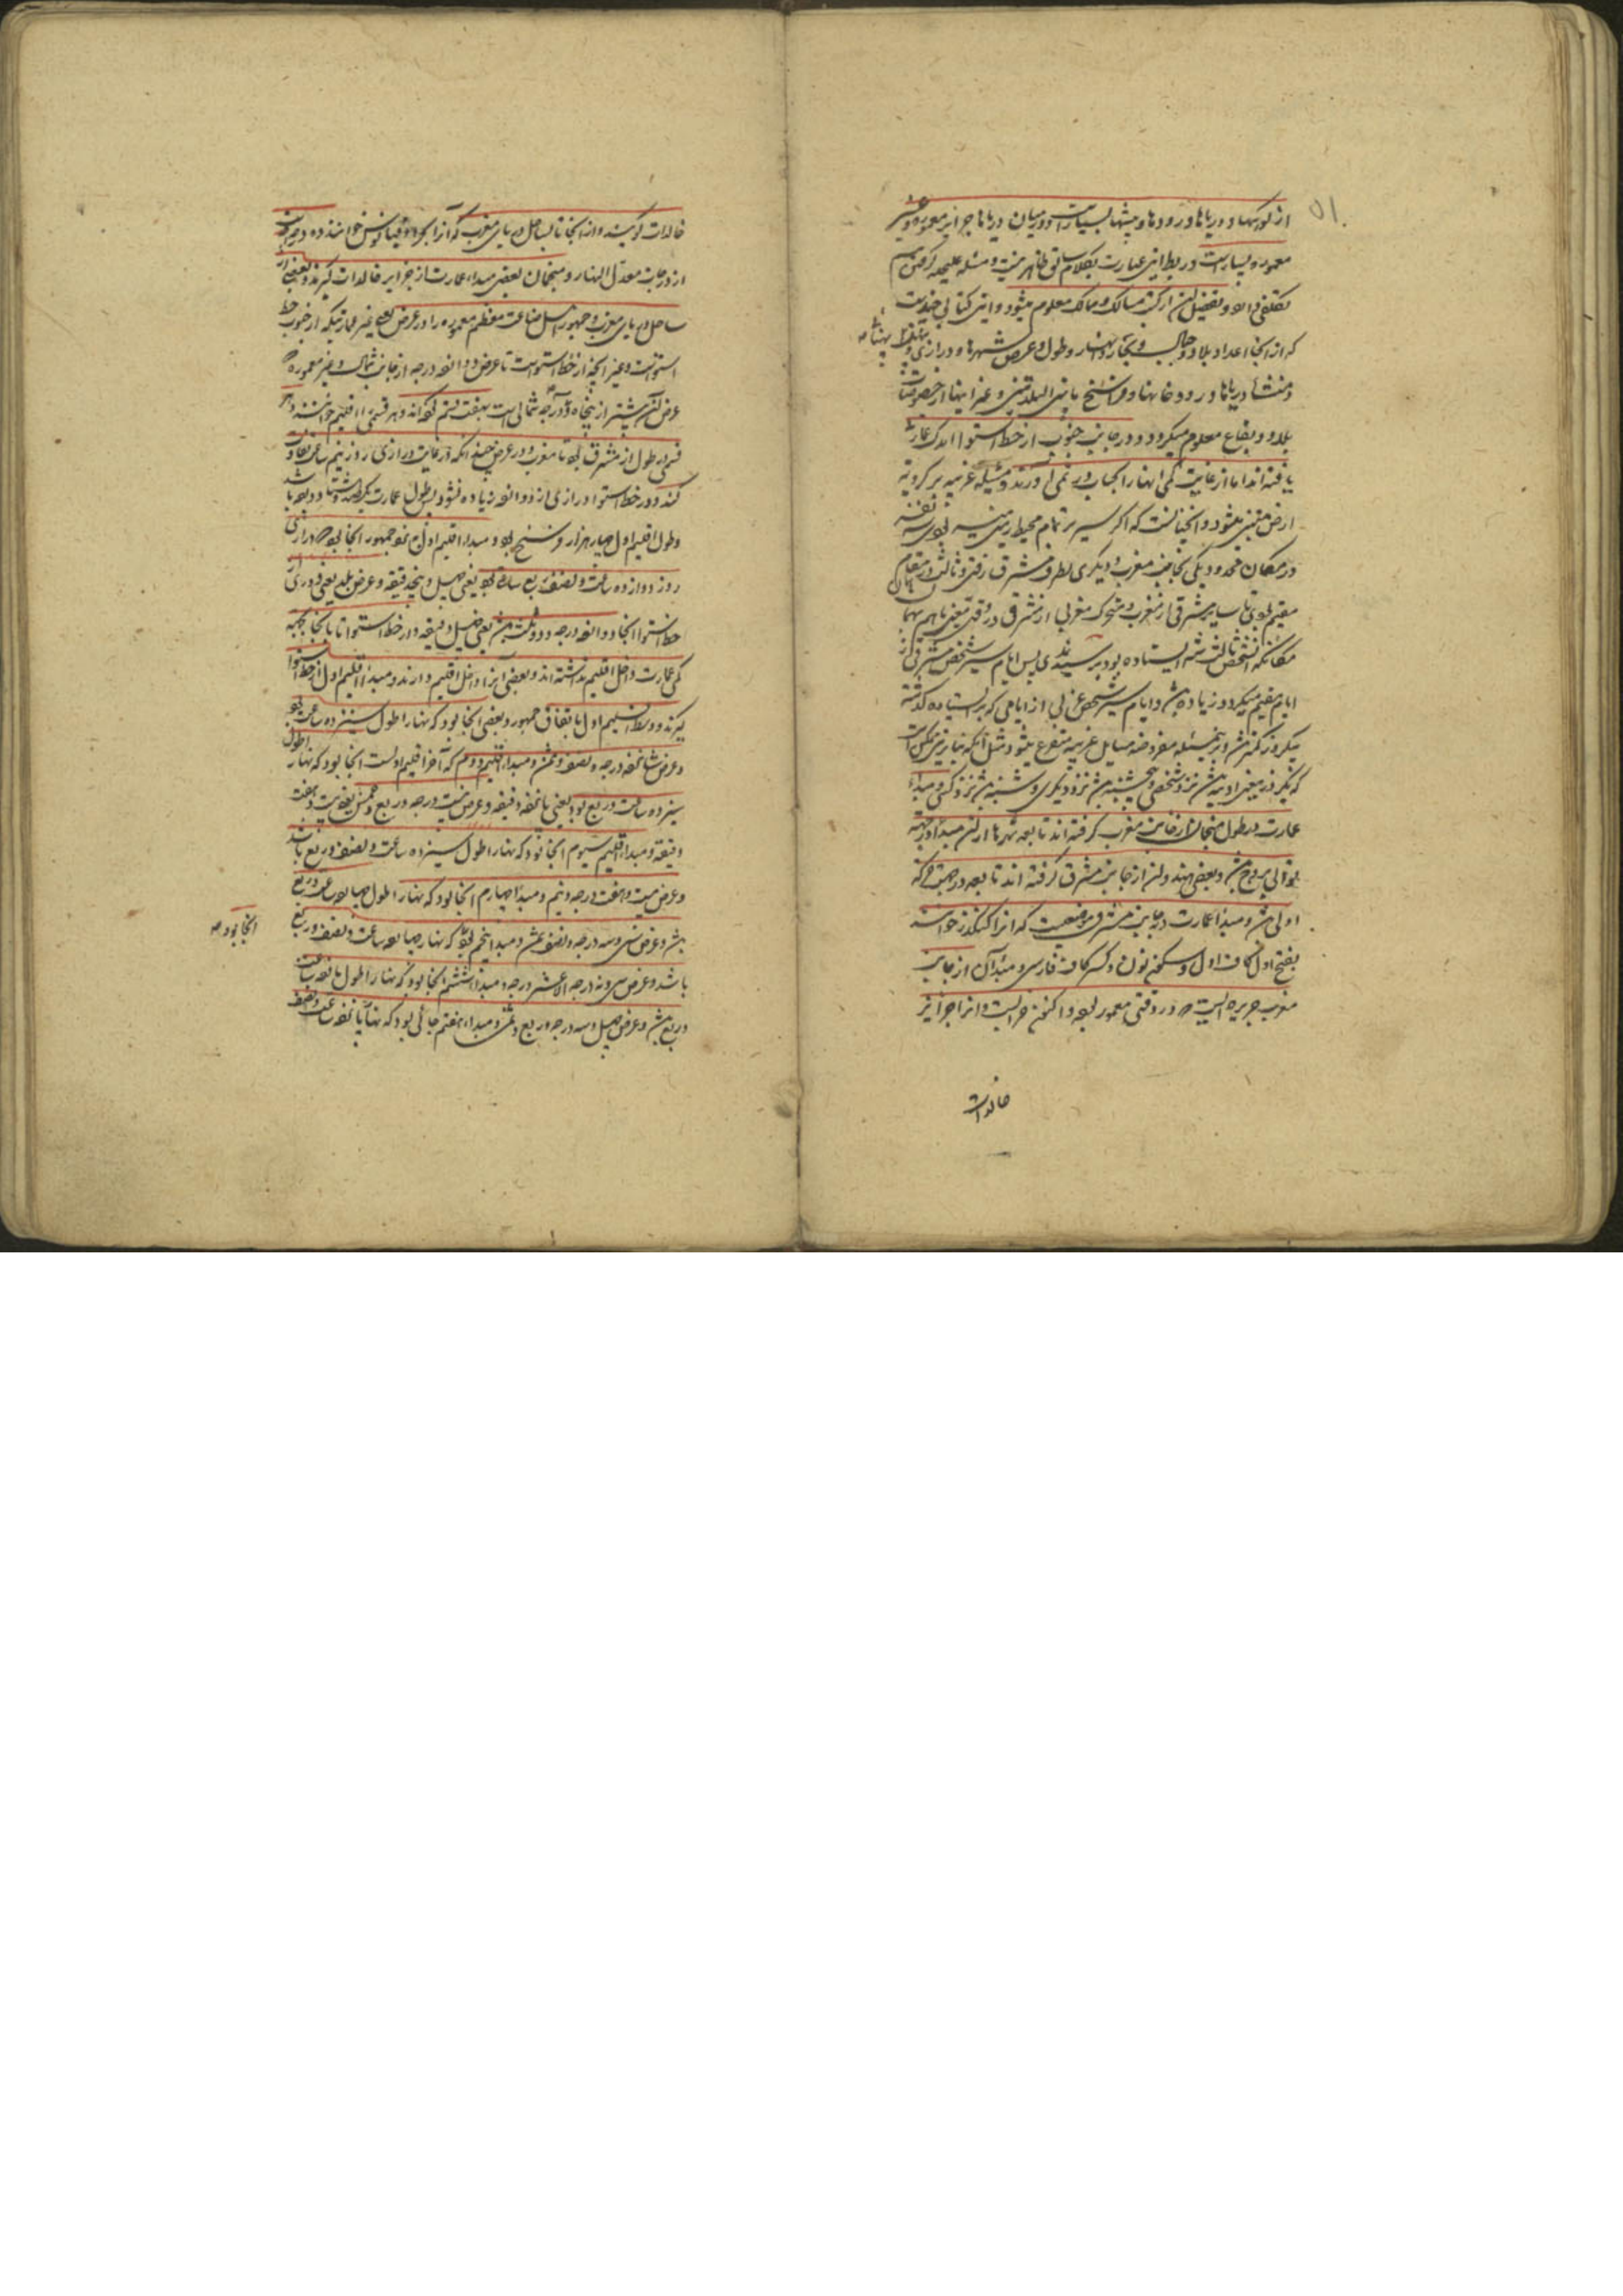 از کوهها و دریاها و رودها و بیشها بسیارست و در میان دریاها جزایر معموره و غیر
معموره بسیارست و ربط این عبارت بکلام سابق ظاهر نیست و مسئله علیحده
و تفصیل آن از کتب مسالک و ممالک معلوم میشود و این کتابی چندست
که از آنجا اعداد بلاد و جبال و بحار و انهار و طول و عرض شهرها و درازی و
و منشاء دریاها و رودخانها و فراسخ مابین البلدتین و غیر اینها از خصوصیات
بلاد و بقاع معلوم میگردد و در جانب جنوب از خط استوا اندک عمارت
یافته اند اما از غایت کمی آنها را بحساب در نمی آورند و مسئله غریبه بر کرویة
ارض مبتنی میشود و آنچنانست که اگر سیر بر تمام محیط زمین میسر بودی سه نفر
در مکان محدود یکی بجانب مغرب و دیگری بطرف مشرق رفتی و ثالث در مقام
مقیم بودی تا سایر مشرقی از مغرب و متحرک مغربی از مشرق در وقتی معین باهم
مکانیکه آن شخص ثالث ایستاده بود برسیدندی پس ایام سیر شخص مشرقی از
ایام مقیم بیکروز زیاده باشد و ایام سیر شخص غربی از ایامی که بر ایستاده گذشته
بیکروز کمتر باشد و برین مسئله مفروضه مسایل غریبه متفرع میشود مثل آنکه
که یکروز معین آدینه باشد نزد شخصی و پنجشنبه باشد نزد دیگری و شنبه باشد نزد کسی و مبداء
عمارت در طول منجمان از جانب مغرب گرفته اند تا بعد شهرها از آن مبدأ در جهة
توالی بروج باشد و بعضی هندوان از جانب مشرق گرفته اند تا بعد در جهت حرکة
اولی باشد و مبدأ عمارت در جانب مشرق موضعیست که آنرا کنگدز خوانند
بفتح اول کاف اول و سکون نون و کسر کاف فارسی و مبدأ آن از جانب
مغرب جزیره ایست که در وقتی معمور بوده و اکنون خرابست و آنرا جزایر
خالدات
خالدات گویند و از آنجا تا بساحل دریای مغرب که آنرا بحر اوقیانوس خوانند ده درجه است
از درجات معدل النهار و منجمان بعضی مبداء عمارت از جزایر خالدات گیرند و بعضی از
ساحل دریای مغرب و جمهور اهل صناعت معظم معموره را در عرض بعد غیر عمارتیکه از جنوب خط
استواست و غیر آنچه از خط استواست تا عرض دوازده درجه از جانب شمال و غیر معموره که
عرض آن بیشتر از پنجاه درجه شمالی است بهفت قسم کرده اند و هر قسمی را اقلیم خوانند و هر
قسمی در طول از مشرق بود تا مغرب و در عرض چندانکه در غایت درازی روز نیم ساعت تفاوت
کند و در خط استوا درازی از دوازده زیاده نشود پس طول عمارت یکصد و هشتاد درجه باشد
وطول اقلیم اول چهار هزار فرسنج بود و مبداء اقلیم اول نزد جمهور آنجا بود که درازی
روز دوازده ساعت و نصف و ربع ساعة بود یعنی چهل و پنج دقیقه و عرض بلد یعنی دوری
خط استوا آنجا دوازده درجه و دو ثلث باشد یعنی چهل دقیقه و از خط استوا تا بانجا بجهة
کمی عمارت داخل اقلیم نداشته اند و بعضی آنرا داخل اقلیم دارند و مبداء اقلیم اول از خط استوا
گیرند و وسط اقلیم اول باتفاق جمهور و بعضی آنجا بود که نهار اطول سیزده ساعت بود
و عرض شانزده درجه و نصف و ثمن و مبداء اقلیم دوم که آخر اقلیم اولست آنجا بود که نهار اطول
سیزده ساعت و ربع بود یعنی پانزده دقیقه و عرض بیست درجه و ربع و خمس یعنی بیست و هفت
دقیقه و مبداء اقلیم سیوم آنجا بود که نهار اطول سیزده ساعت و نصف و ربع باشد
و عرض بیست و هفت درجه و نیم و مبدأ چهارم آنجا بود که نهار اطول چهارده ساعت و ربع
باشد و عرض سی و سه درجه و نصف و ثمن و مبدأ پنجم آنجا بود که نهار چهارده ساعت و نصف و ربع
باشد و عرض سی و نه درجه الا عشر درجه و مبدأ ششم آنجا بود که نهار اطول پانزده ساعت
و ربع باشد و عرض چهل و سه درجه و ربع و ثمن و مبداء هفتم جائی بود که نهار پانزده ساعت و نصف
آنجا بود